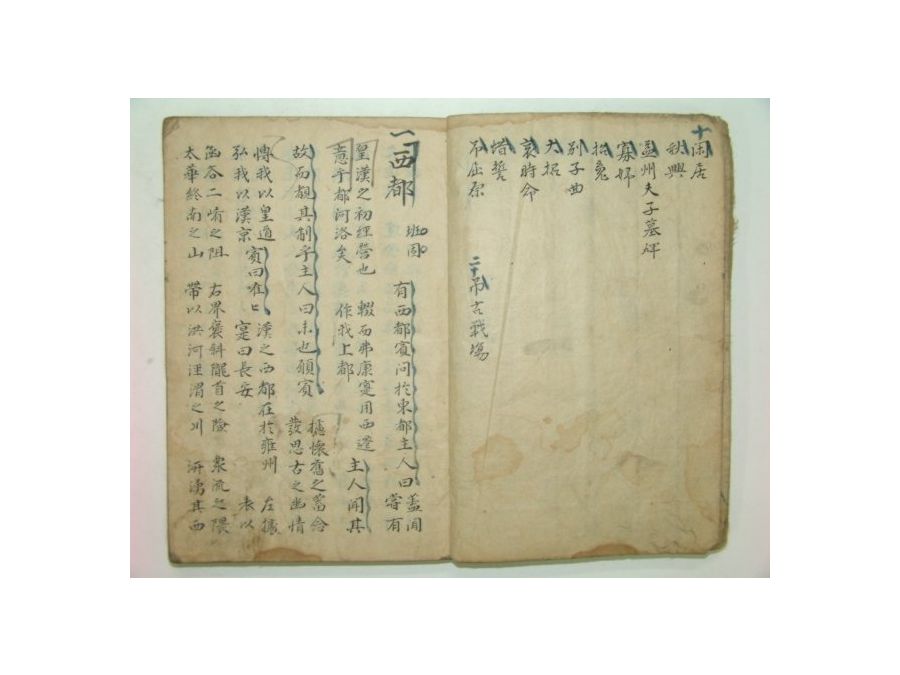 十閑居
秋興
益州夫子墓碑
寡婦
招魂
別子曲
大招
哀時命
惜誓
吊屈原
二十吊古戰場
一西都
班固
有西都賓問於東都主人曰
盖聞皇漢之初經營也
嘗有意乎都河洛矣
輟而弗康寔用西遷
作我上都
主人聞其故而覩其制乎主人曰未也願賓
攄懷舊之蓄念
發思古之幽情
博我以皇道
弘我以漢京
賓曰唯〻
漢之西都在於雍州
寔曰長安
左據函谷二崤之阻
表以太華終南之山
右界褒斜隴首之險
帶以洪河涇渭之川
衆流之隈
汧湧其西